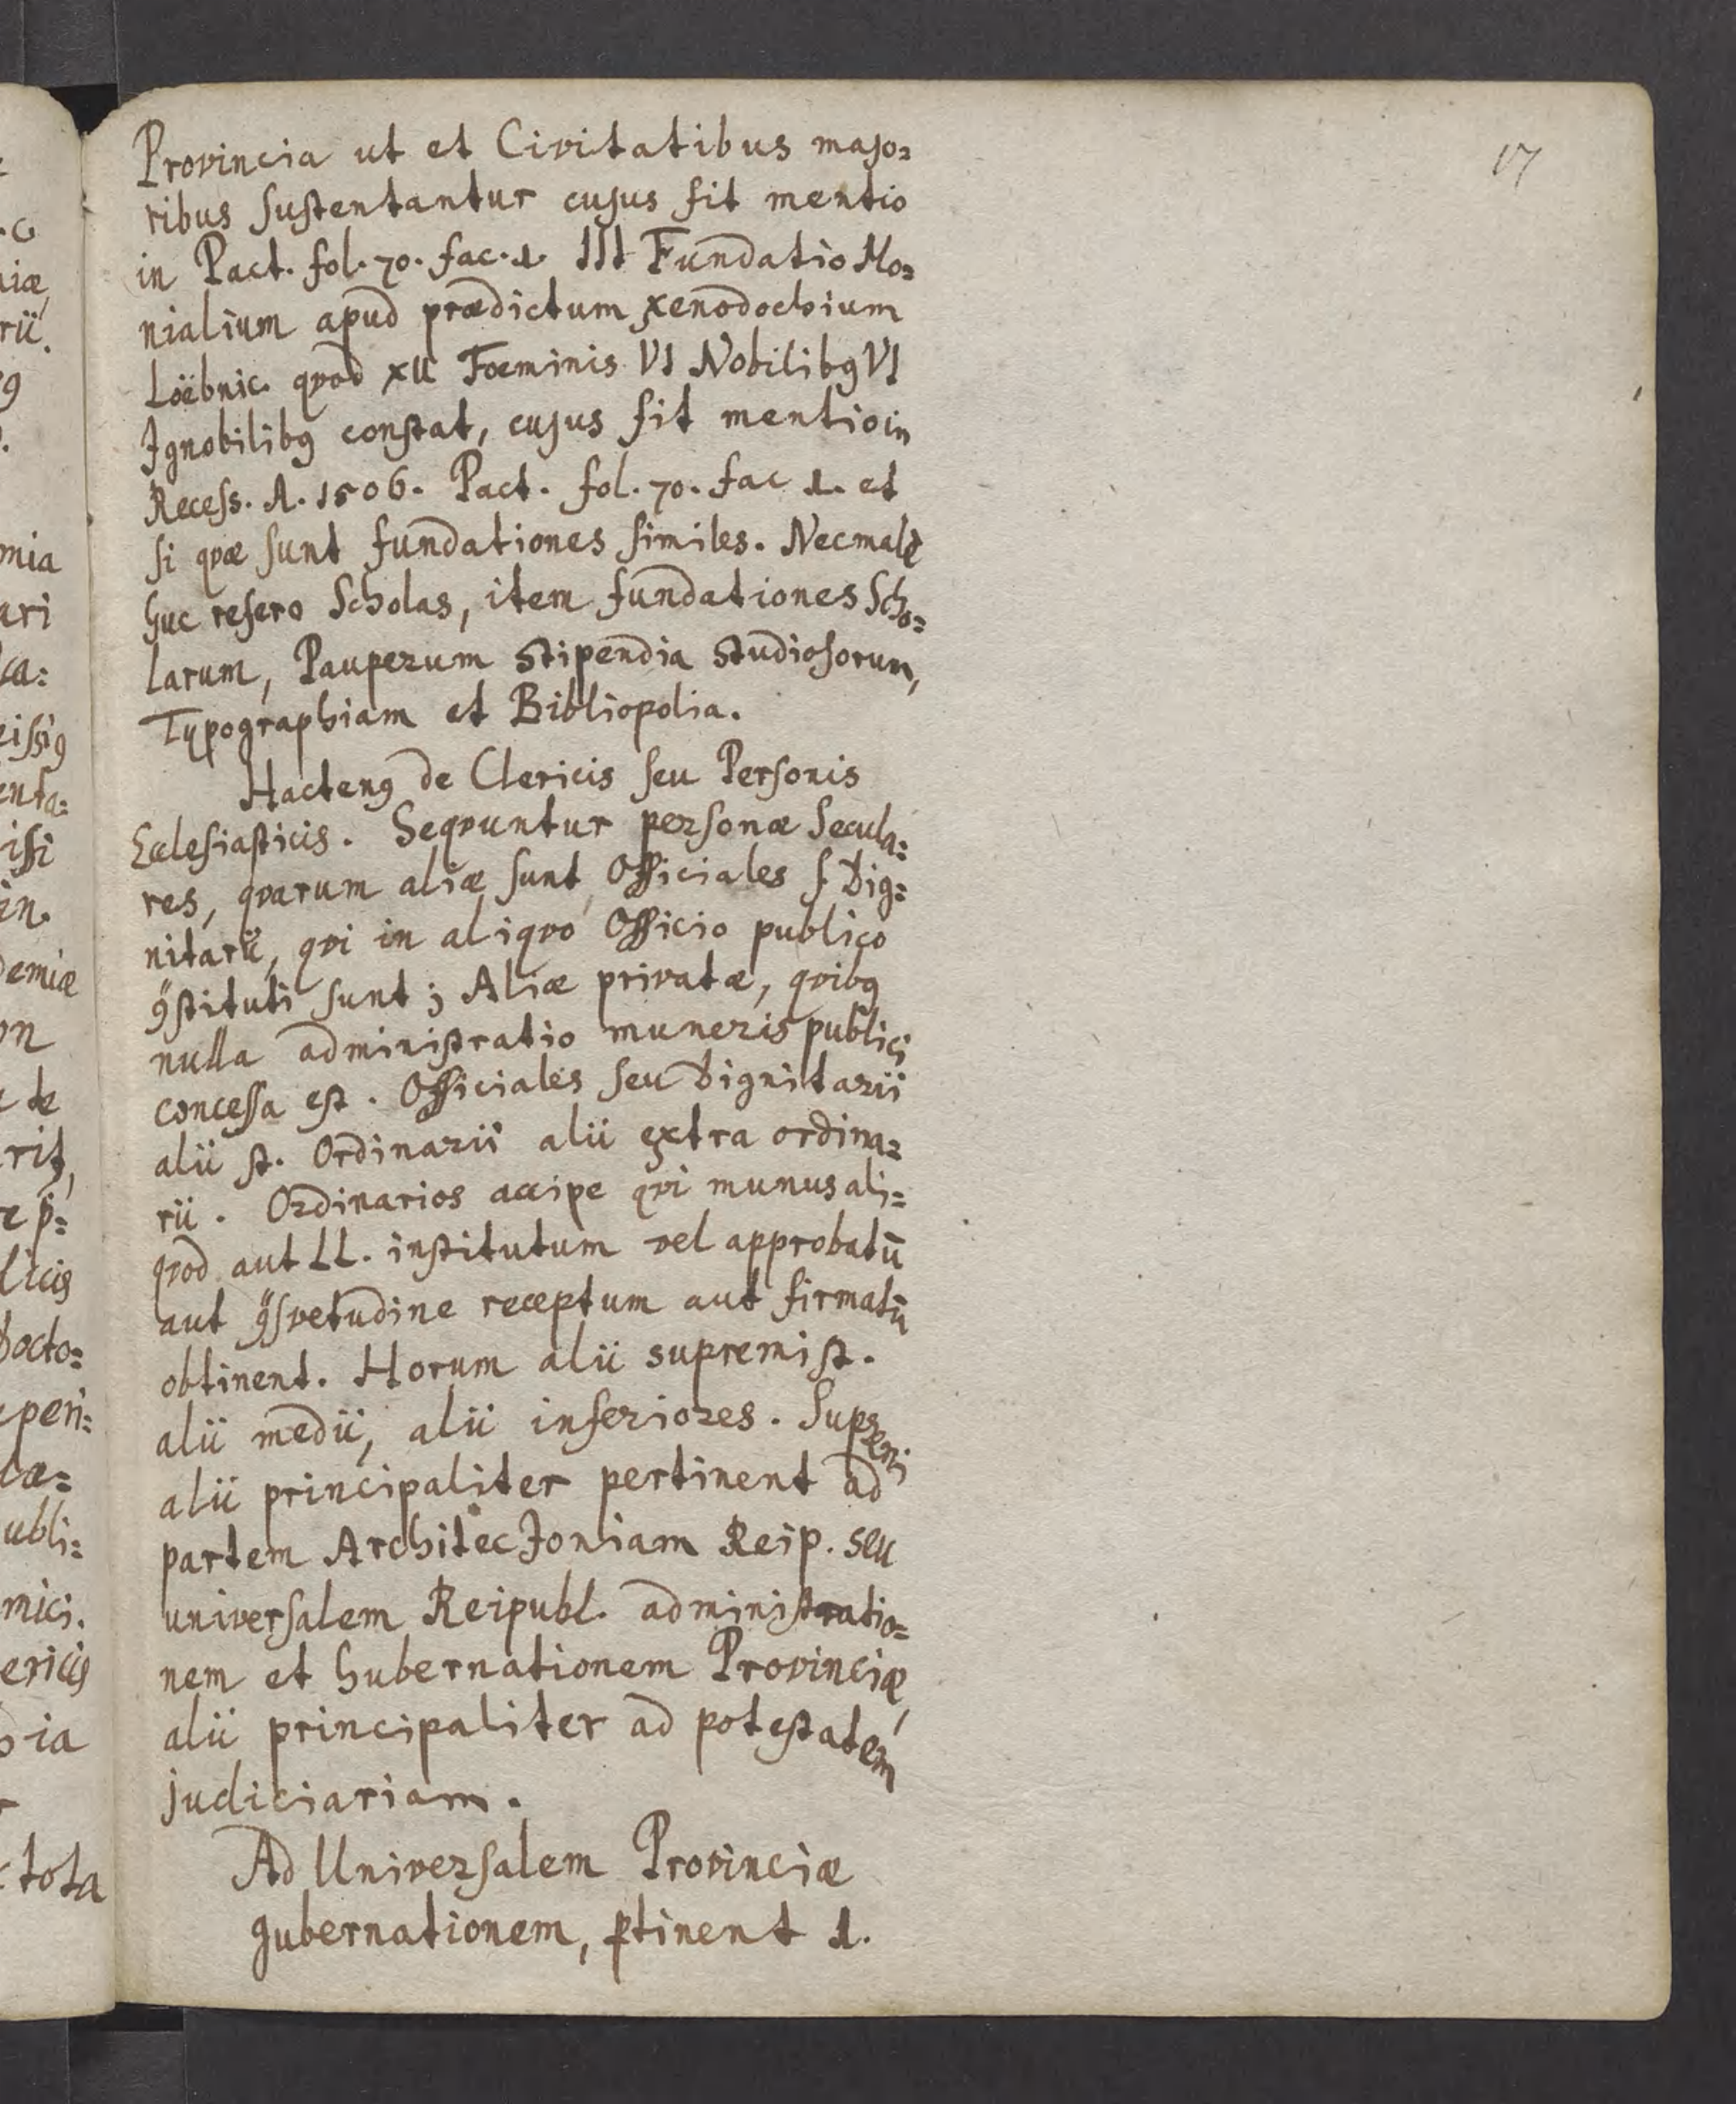 17
Provincia ut et Civitatibus majo=
ribus sustentantur cujus fit mentio
in Pact. fol. 70. fac. 1. III Fundatio Mo=
nialium apud prædictum xenodochium
Löebnic. qvod XII Foeminis VI Nobilibꝯ VI
Ignobilibꝯ constat, cujus fit mentio in
Recess. A. 1506. Pact. fol. 70. fac 1. et
si qvæ sunt fundationes similes. Nec malè
huc refero Scholas, item fundationes Scho=
larum, Pauperum stipendia studiosorum,
Typographiam et Bibliopolia.
Hactenꝯ de Clericis seu Personis
Ecclesiasticis. Seqvuntur personæ Secula=
res, qvarum aliæ sunt Officiales s. Dig=
nitarii, qvi in aliqvo Officio publico
ꝯstituti sunt; Aliæ privatæ, qvibꝯ
nulla administratio muneris publici
concessa est. Officiales seu Dignitarii
alii st. Ordinarii alii extra ordina=
rii. Ordinarios accipe qvi munus ali=
qvod aut LL. institutum vel approbatū
aut ꝯsvetudine receptum aut firmatū
obtinent. Horum alii supremi st.
alii medii, alii inferiores. Supremi
alii principaliter pertinent ad
partem Architectoniam Reip. seu
universalem Reipubl. administratio=
nem et Gubernationem Provinciæ,
alii principaliter ad potestatem
judiciariam.
Ad Universalem Provinciæ
gubernationem, ꝑtinent 1.